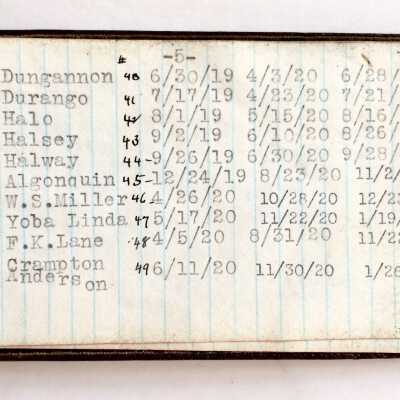 # -5-
Dungannon 40 6/30/19 4/3/20 6/28/
Durango 41 7/17/19 4/23/20 7/21/
Halo 42 8/1/19 5/15/20 8/16/
Halsey 43 9/2/19 6/10/20 8/26/
Halway 44- 9/26/19 6/30/20 9/28/
Algonquin 45- 12/24/19 8/23/20 11/2/
W.S.Miller 46 4/26/20 10/28/20 12/23
Yoba Linda 47 5/17/20 11/22/20 1/19/
F.K.Lane 48 4/5/20 8/31/20 11/22
Crampton 49 6/11/20 11/30/20 1/26
Anderson